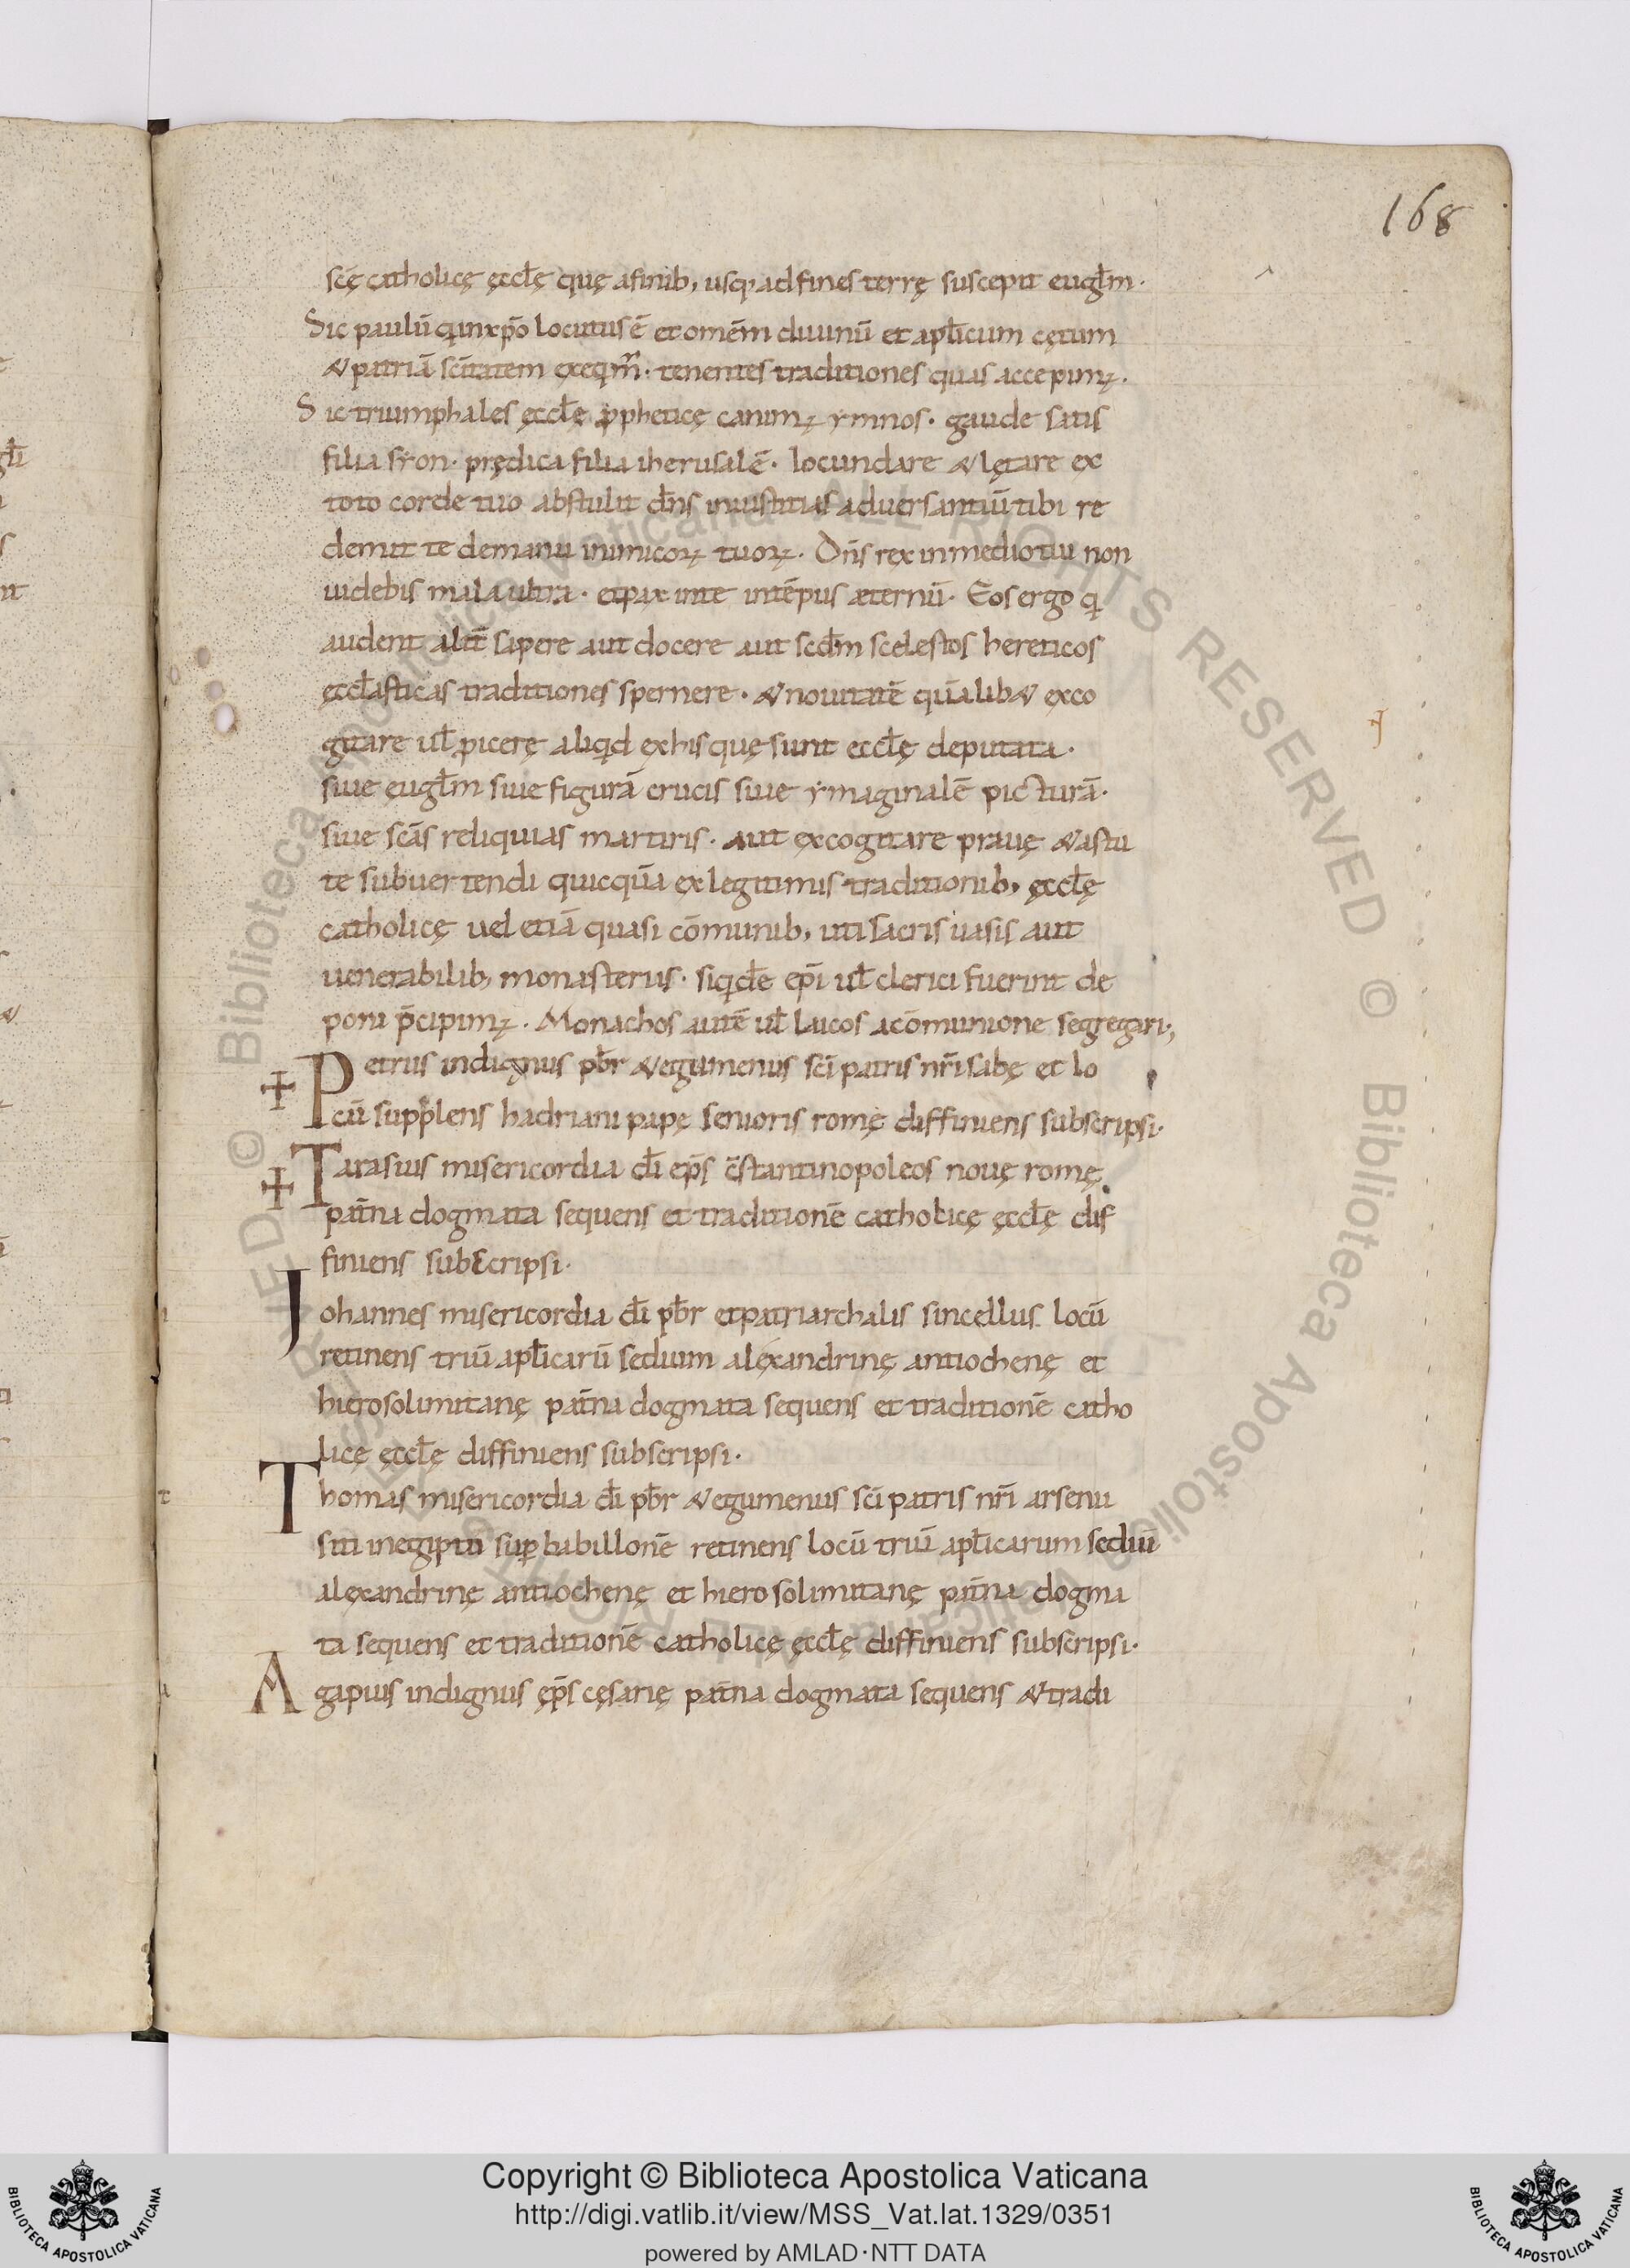 168
scę̄ catholicę ęccłę quę afinib; usq; ad fines terrę suscepit eugłm·
Sic paulū qui inxp̄o locutus ē et omēm diuinū et apl̄icum cętum
& patriā sc̄itatem exeqm̄r· tenentes traditiones quas accepimꝰ·
Sic triumphales ęccłę ꝓphetice canimꝰ ymnos· gaude satis
filia syon· prędica filia iherusalē· Iocundare & lętare ex
toto corde tuo abstulit dn̄s iniustitias aduersantiū tibi re
demit te demanu inimicoꝝ tuoꝝ. Dn̄s rex inmedio tui non
uidebis mala ultra· et pax inte intēpus æternū· Eos ergo qi
audent alit̄ sapere aut docere aut scd̄m scelestos hereticos
ęccłasticas traditiones spernere· & nouitatē quālib& exco
gitare uł ꝓicerę aliqd exhis quę sunt eccłę deputata·
siue ęugłm siue figurā crucis siue ymaginalē picturā·
siue scās reliquias martiris· aut excogitare prauę & astu
te subuertendi quicquā ex legitimis traditionib; ęccłę
catholicę uel etiā quasi cōmunib; uti sacris uasis aut
uenerabilib; monasteriis· siqidē ep̄i uł clerici fuerint de
poni p̄cipimꝰ. Monachos autē uł laicos acōmunione segregari;
✝ Petrus indignus pb̄r & egumenus sc̄i patris nr̄i sabę et lo
cū supplens hadriani papę senioris romę diffiniens subscripsi·
✝ Tarasius misericordia dī ep̄s c̄stantinopoleos nouę romę
pat̄na dogmata sequens et traditionē catholicę ęccłę dif
finiens subscripsi·
Johannes misericordia dī pb̄r et patriarchalis sincellus locū
retinens triū apl̄icarū sedium alexandrinę antiochenę et
hierosolimitanę pat̄na dogmata sequens et traditionē catho
licę ęccłę diffiniens subscripsi·
Thomas misericordia dī pb̄r & egumenus sc̄i patris nr̄i arsenii
siti inegiptū suꝑ babillonē retinens locū triū apl̄icarum sediū
alexandrinę antiochenę et hierosolimitanę pat̄na dogma
ta sequens et traditionē catholicę ęccłę diffiniens subscripsi·
Agapius indignus ęp̄s cęsarię pat̄na dogmata sequens & tradi
© Biblioteca Apostolica Vaticana ALL RIGHTS RESERVED
Copyright © Biblioteca Apostolica Vaticana
http://digi.vatlib.it/view/MSS_Vat.lat.1329/0351
powered by AMLAD·NTT DATA
BIBLIOTECA APOSTOLICA VATICANA
BIBLIOTECA APOSTOLICA VATICANA